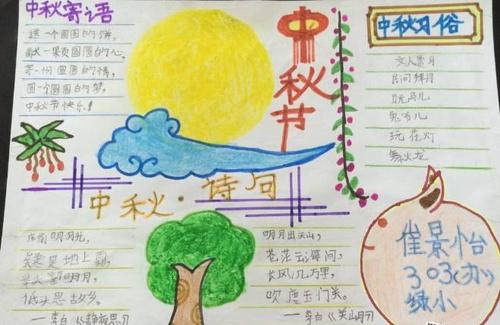 中秋寄语
送一个圆圆的饼,
献一颗圆圆的心,
寄一份圆圆的情,
圆一个圆圆的梦,
中秋节快乐!
中秋节
中秋习俗
文人赏月
民间拜月
玩花灯
舞火龙
中秋·诗词
床前明月光,
疑是地上霜,
明月,
低头思故乡。
—李白《静夜思》
明月出天山,
苍茫云海间,
长风几万里,
吹度玉门关。
—李白《关山月》
崔景怡
303(办)
绿小